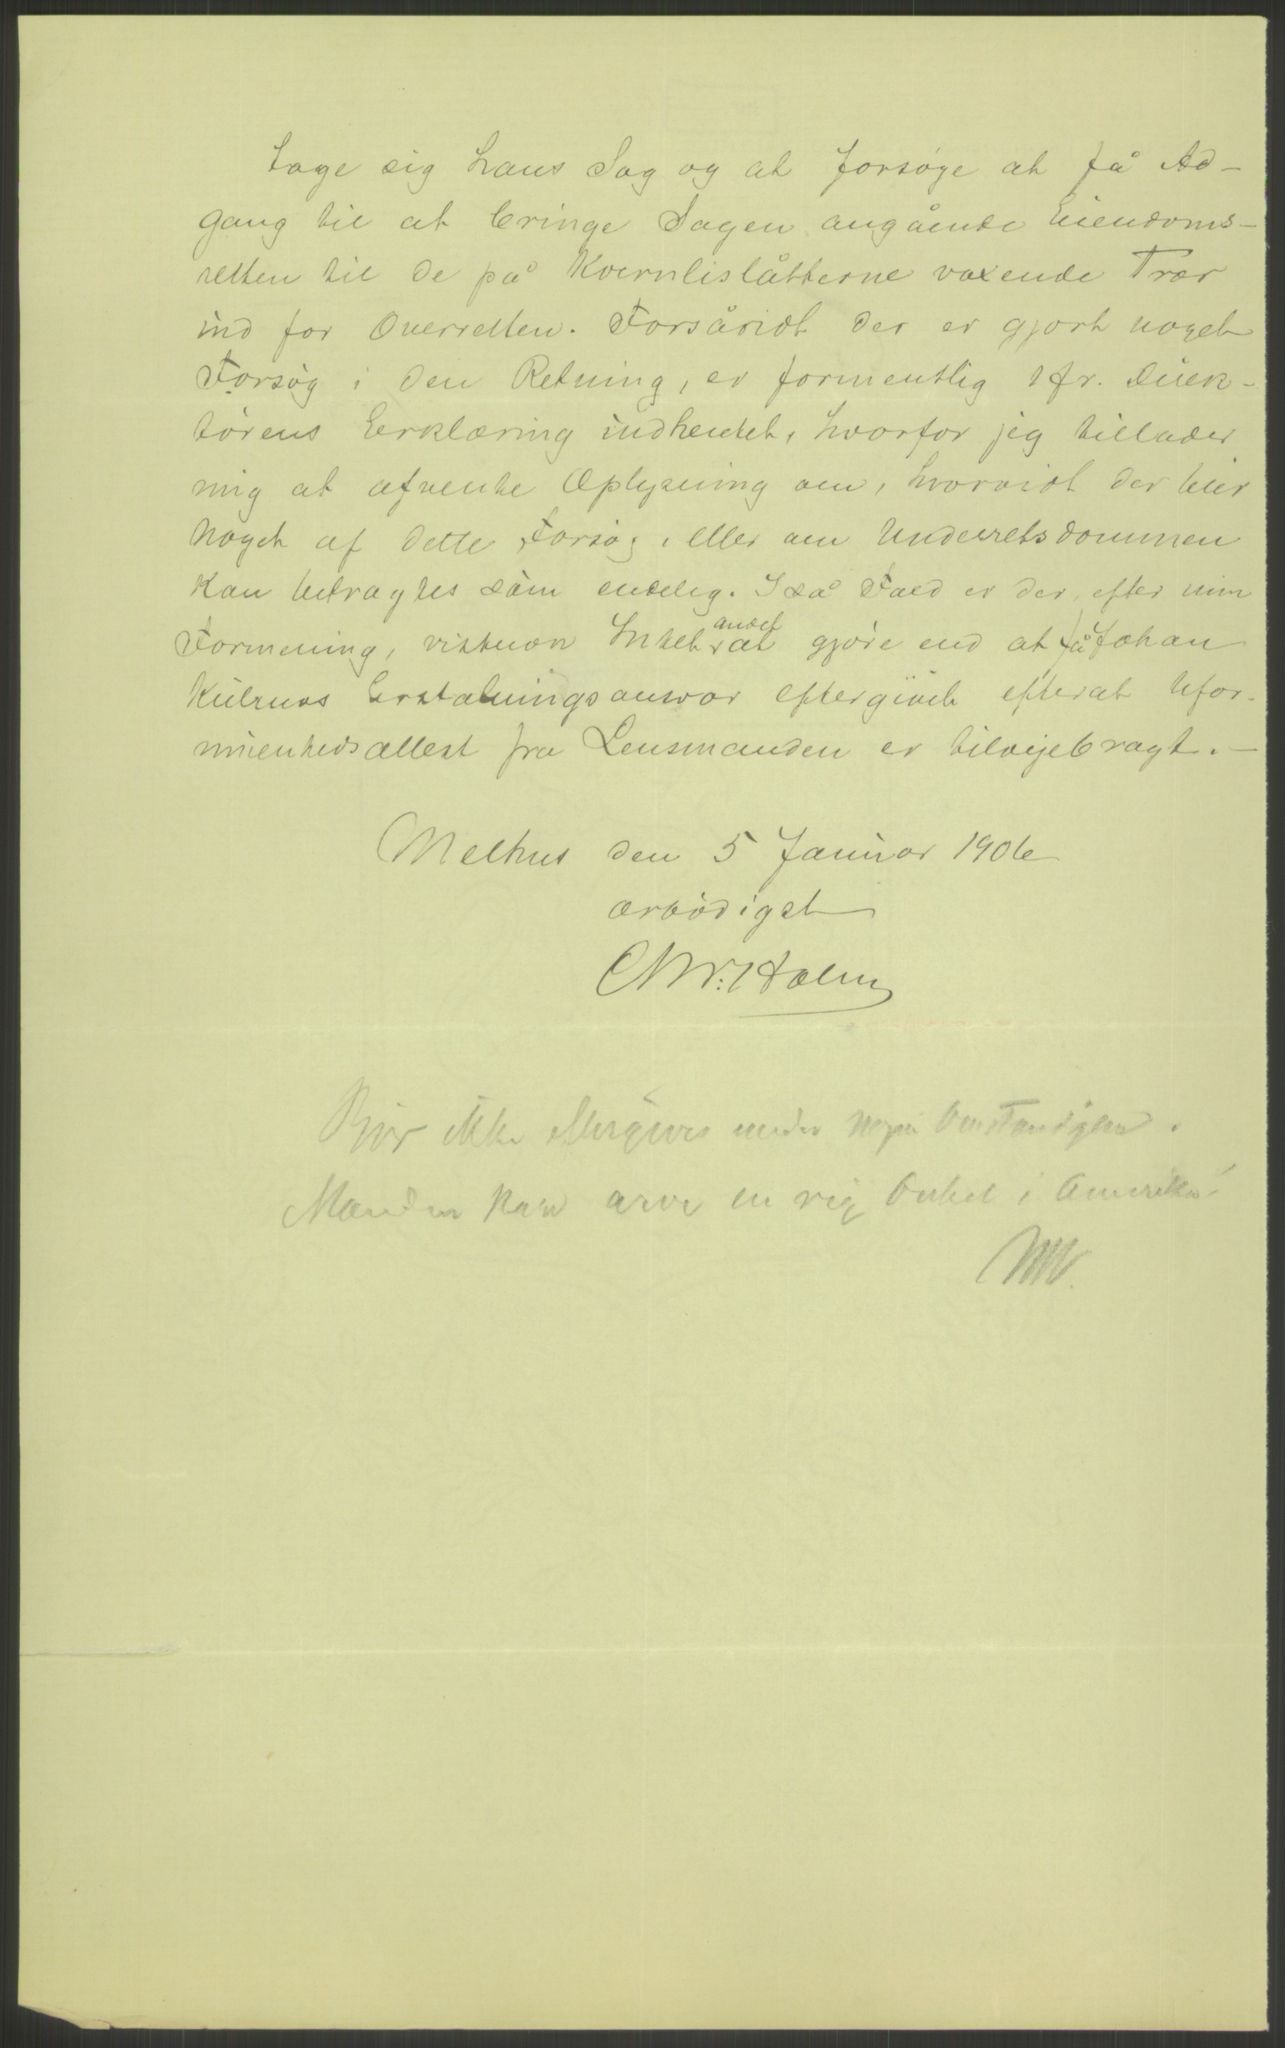 tage sig hans Sag og at forsøge at få Ad-
gang til at bringe Sagen angående Eiendoms-
retten til de på Kvernlislåtterne voxende Trær
ind for Overretten. Forsåvidt der er gjort noget
Forsøg i den Retning, er formentlig Hr. Direk-
tørens Erklæring indhentet, hvorfor jeg tillader
mig at afvente Oplysning om, hvorvidt der blir
noget af dette Forsøg, eller om Underretsdommen
kan betragtes som endelig. I så Fald er der, efter min
Formening, vistnok Intet andet at gjøre end at få Johan
Erstatningsansvar eftergivet efterat Ufor-
muenhedsattest fra Lensmanden er tilveiebragt. —
Melhus den 5 Januar 1906
ærbødigst
Chr. Holm
Bør ikke eftergives under nogen Omstændighed.
Manden kan arve en rig Onkel i Amerika!